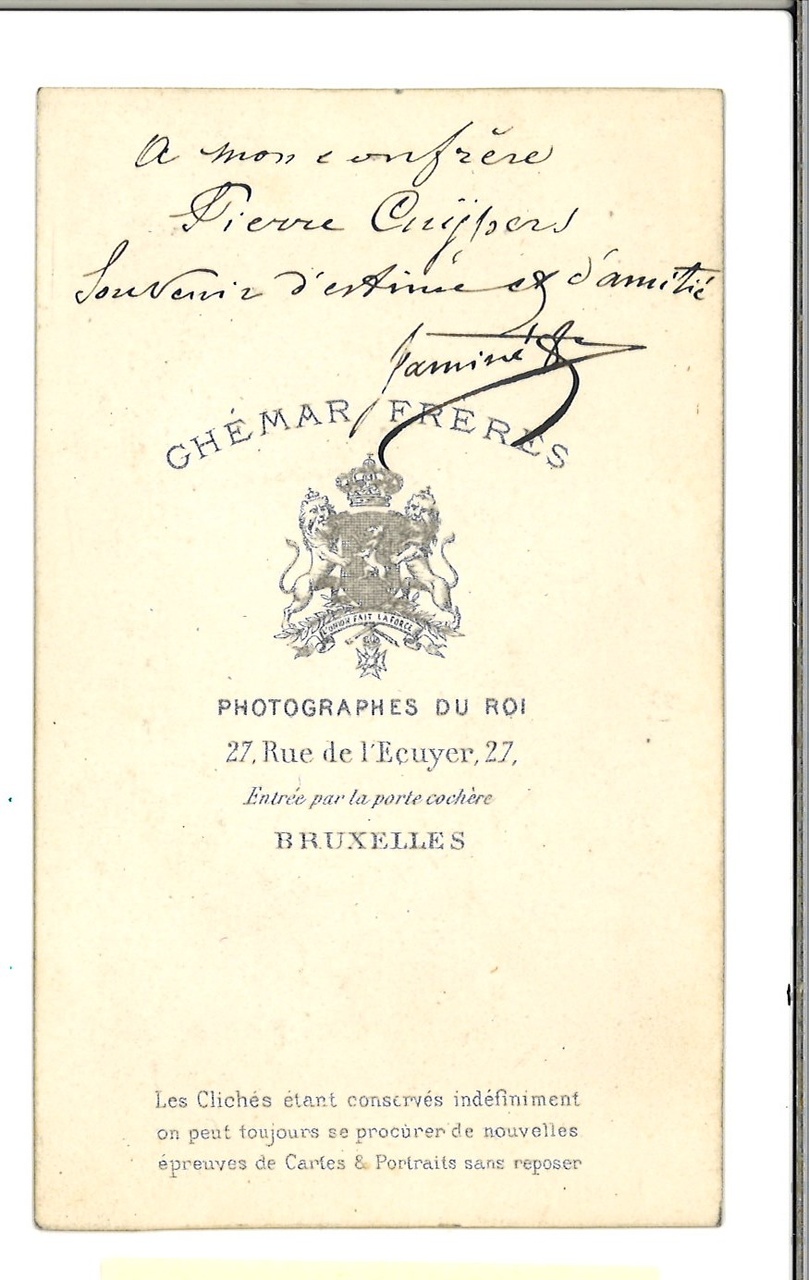 A mon confrère
Pierre Cuÿpers
Souvenir d'estime et d'amitié
Jaminé
GHÉMAR FRÈRES
L'UNION FAIT LA FORCE
PHOTOGRAPHES DU ROI
27, Rue de l'Ecuyer, 27,
Entrée par la porte cochère
BRUXELLES
Les Clichés étant conservés indéfiniment
on peut toujours se procurer de nouvelles
épreuves de Cartes & Portraits sans reposer